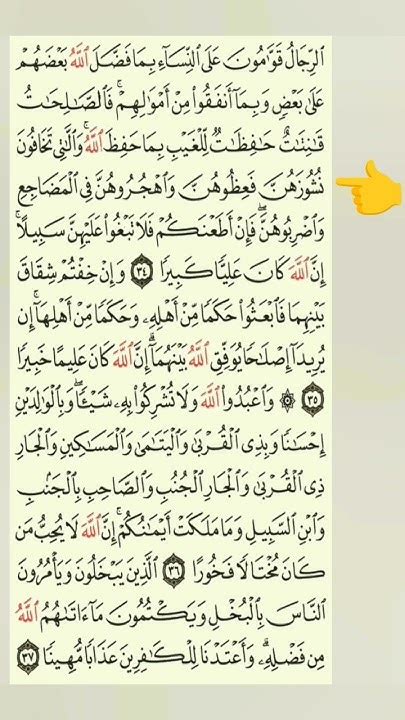 ٱلرِّجَالُ قَوَّٰمُونَ عَلَى ٱلنِّسَآءِ بِمَا فَضَّلَ ٱللَّهُ بَعْضَهُمْ
عَلَىٰ بَعْضٍ وَبِمَآ أَنفَقُوا۟ مِنْ أَمْوَٰلِهِمْ ۚ فَٱلصَّٰلِحَٰتُ
قَٰنِتَٰتٌ حَٰفِظَٰتٌ لِّلْغَيْبِ بِمَا حَفِظَ ٱللَّهُ ۚ وَٱلَّٰتِى تَخَافُونَ
نُشُوزَهُنَّ فَعِظُوهُنَّ وَٱهْجُرُوهُنَّ فِى ٱلْمَضَاجِعِ
وَٱضْرِبُوهُنَّ ۖ فَإِنْ أَطَعْنَكُمْ فَلَا تَبْغُوا۟ عَلَيْهِنَّ سَبِيلًا ۗ
إِنَّ ٱللَّهَ كَانَ عَلِيًّا كَبِيرًا ٣٤ وَإِنْ خِفْتُمْ شِقَاقَ
بَيْنِهِمَا فَٱبْعَثُوا۟ حَكَمًا مِّنْ أَهْلِهِۦ وَحَكَمًا مِّنْ أَهْلِهَآ إِن
يُرِيدَآ إِصْلَٰحًا يُوَفِّقِ ٱللَّهُ بَيْنَهُمَآ ۗ إِنَّ ٱللَّهَ كَانَ عَلِيمًا خَبِيرًا
٣٥ ۞ وَٱعْبُدُوا۟ ٱللَّهَ وَلَا تُشْرِكُوا۟ بِهِۦ شَيْـًٔا ۖ وَبِٱلْوَٰلِدَيْنِ
إِحْسَٰنًا وَبِذِى ٱلْقُرْبَىٰ وَٱلْيَتَٰمَىٰ وَٱلْمَسَٰكِينِ وَٱلْجَارِ
ذِى ٱلْقُرْبَىٰ وَٱلْجَارِ ٱلْجُنُبِ وَٱلصَّاحِبِ بِٱلْجَنۢبِ
وَٱبْنِ ٱلسَّبِيلِ وَمَا مَلَكَتْ أَيْمَٰنُكُمْ ۗ إِنَّ ٱللَّهَ لَا يُحِبُّ مَن
كَانَ مُخْتَالًا فَخُورًا ٣٦ ٱلَّذِينَ يَبْخَلُونَ وَيَأْمُرُونَ
ٱلنَّاسَ بِٱلْبُخْلِ وَيَكْتُمُونَ مَآ ءَاتَىٰهُمُ ٱللَّهُ
مِن فَضْلِهِۦ ۗ وَأَعْتَدْنَا لِلْكَٰفِرِينَ عَذَابًا مُّهِينًا ٣٧